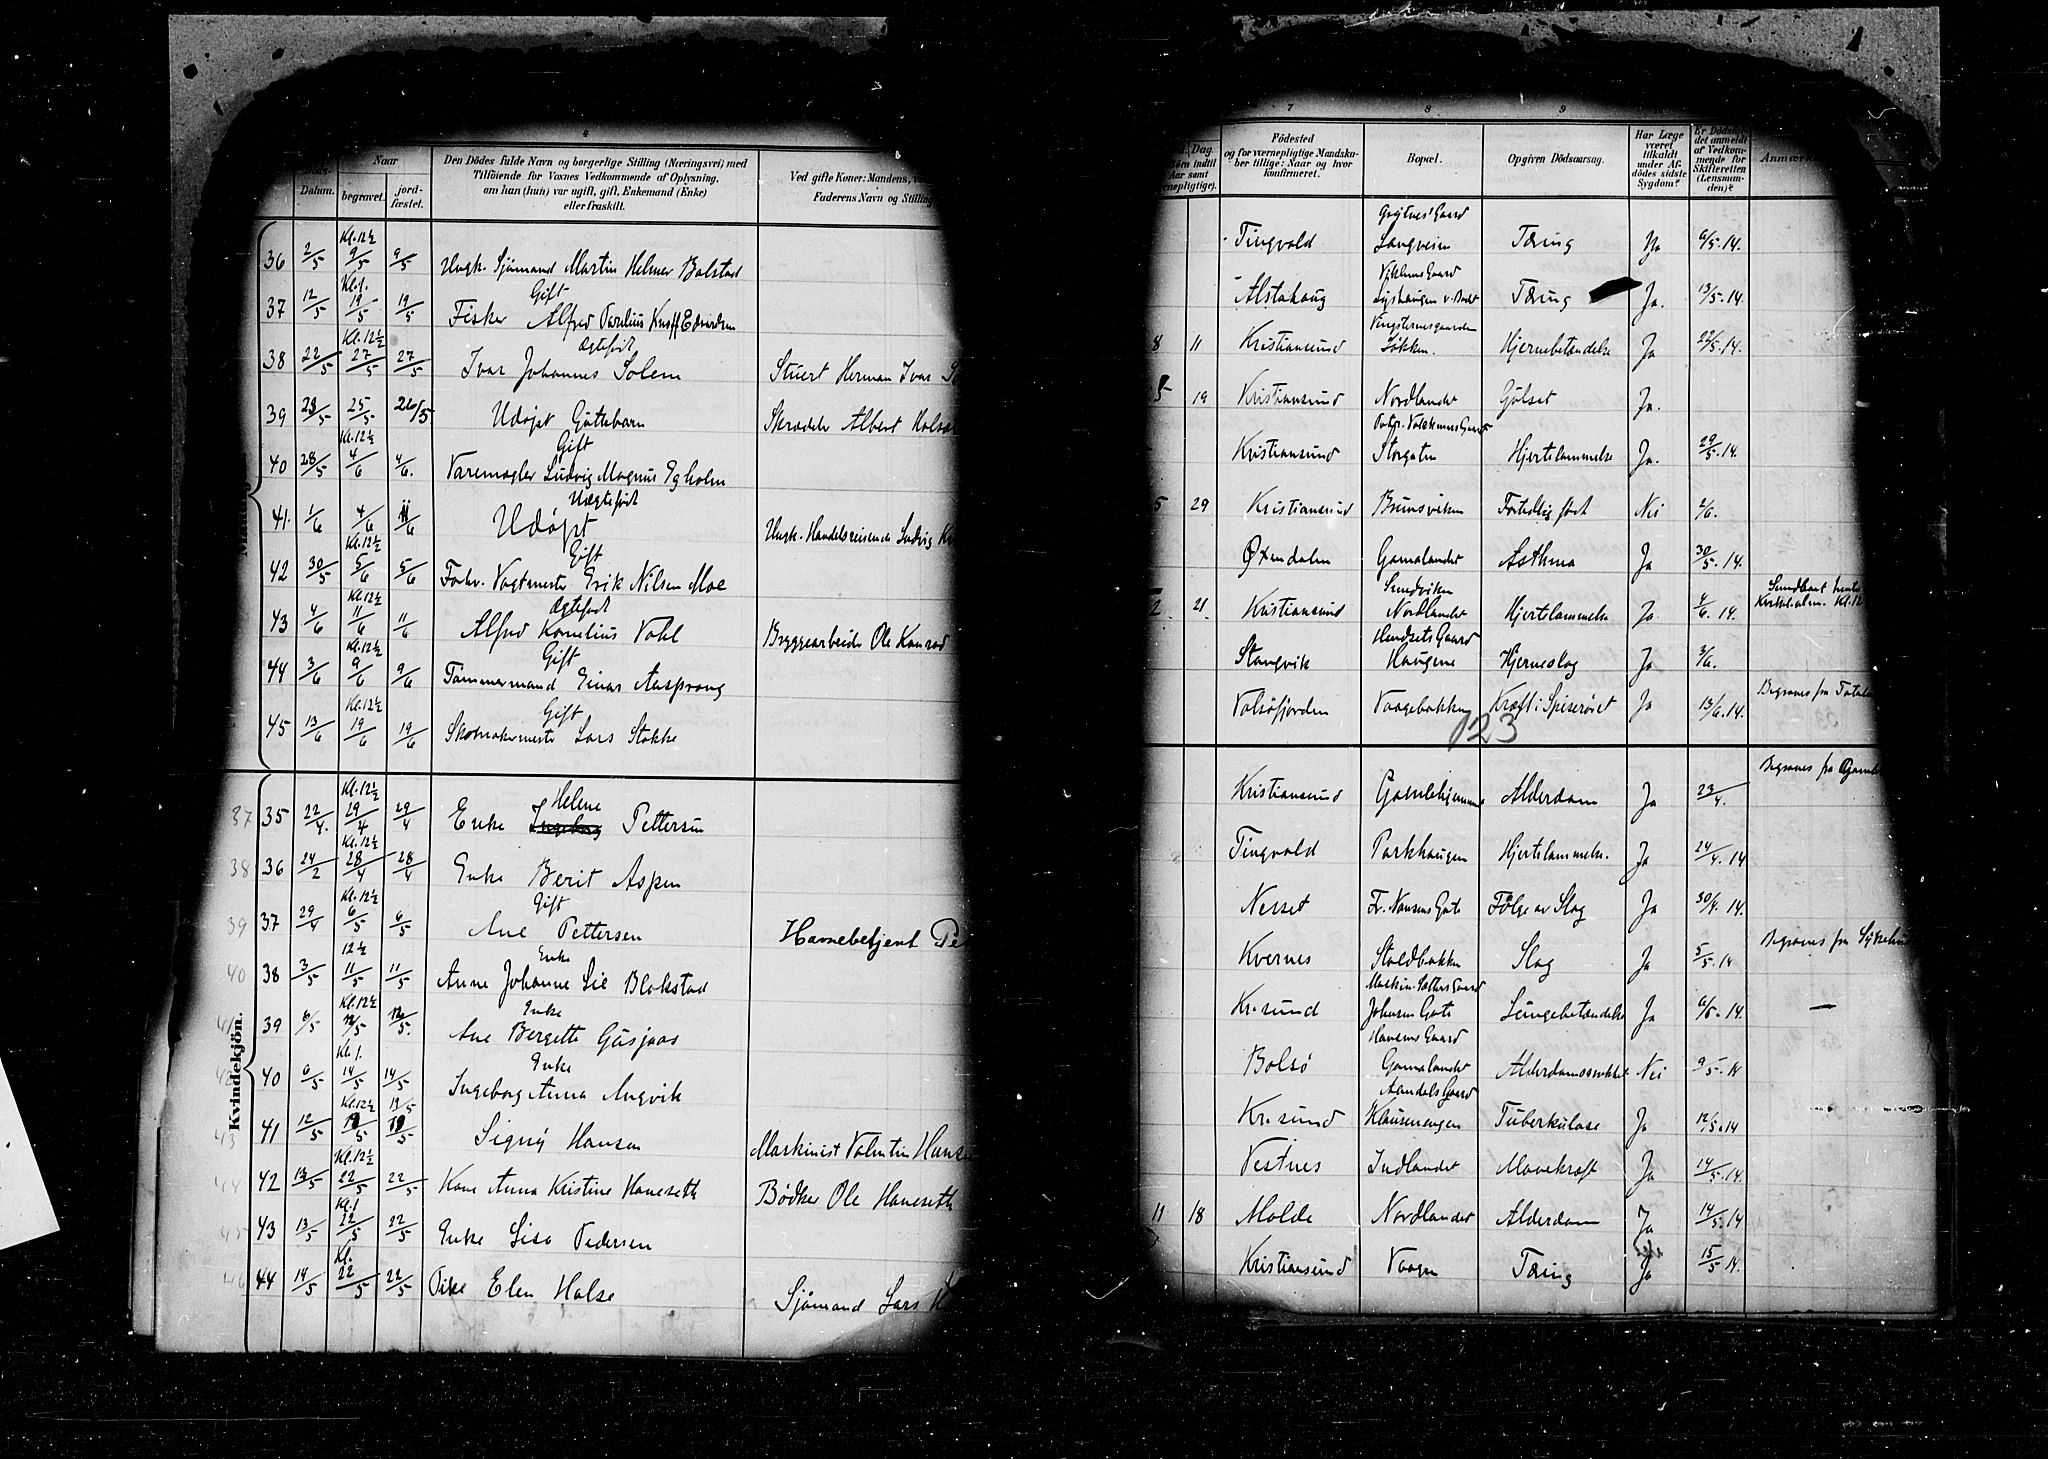 4
Naar
Datum.
begravet.
jord-
fæstet.
Den Dödes fulde Navn og borgerlige Stilling (Næringsvei) med
Tilföiende for Voxnes Vedkommende af Oplysning,
om han (hun) var ugift, gift, Enkemand (Enke)
eller fraskilt.
Ved gifte Koner: Mandens,
Faderens Navn og Stilling
Kl. 12½
36 2/5 9/5 9/5 Ungk. Sjömand Martin Helmer Bolstad
Kl. 1. Gift
37 12/5 19/5 19/5 Fisker Alfred Parelius Edvardsen
Kl. 12½ Ægtefödt
38 22/5 27/5 27/5 Ivar Johannes Solem Stuert Herman Ivar
39 23/5 25/5 26/5 Udöpt Guttebarn Skrædder Albert
Kl. 12½ Gift
40 28/5 4/6 4/6. Varemægler Ludvig Magnus Egholm
Uægtefödt
41. 1/6 4/6 11/6 Udöpt Ungk. Handelsreisende Ludvig
Kl. 12½ Gift
42 30/5 5/6 5/6 Forhv. Vagtmester Erik Nilsen Moe
Kl. 12½ Ægtefödt
43 4/6 11/6 11/6 Alfred Kornelius Vahl Bryggearbeider Ole Konrad
Kl. 12½ Gift
44 3/6 9/6 9/6 Tömmermand Einar Aasprong
Kl. 12½ Gift
45 13/6 19/6 19/6 Skomakermester Lars Stokke
Kvindekjön.
Kl. 12½ Helene
37 35 22/4. 29/4 29/4 Enke Ingeborg Pettersen
Kl. 12½
38 36 24/2 28/4 28/4 Enke Berit Aspen
Kl. 12½ Gift
39 37 29/4 6/5 6/5 Ane Pettersen Havnebetjent
12½ Enke
40 38 3/5 11/5 11/5 Anne Johanne Lie Blakstad
Kl. 12½ Enke
41 39 6/5 12/5 12/5. Ane Bergette Gusjaas
Kl. 1. Enke
40 6/5 14/5 14/5 Ingeborg Anna Angvik
Kl. 12½ 19/5
43 41 12/5 19/5 Signy Hansen Maskinist Valentin Hansen
Kl. 12½
44 42 13/5 22/5 22/5 Kone Anna Kristine Haneseth Bödker Ole Haneseth
Kl. 1
45 43 13/5 22/5 22/5 Enke Lisa Pedersen
Kl.
46 44 14/5 22/5 22/5 Pike Elen Halse Sjömand Lars
7 8 9
Dag
Födested
og for værnepligtige Mandska-
ber tillige: Naar og hvor
konfirmeret.
Bopæl.
Opgiven Dödsaarsag.
Har Læge
været
tilkaldt
under Af-
dödes sidste
Sygdom?
Er Dödsfal-
det anmeldt
af Vedkom-
mende for
Skifteretten
(Lensman-
den)?
Anmærk
Tingvold Langveien Tæring Ja 6/5.14.
Alstahaug Tæring Ja. 13/5.14.
8 11 Kristiansund Løkken. Hjernebetændelse Ja 22/5.14.
5 19 Kristiansund Nordlandet Gulsot Ja.
Kristiansund Storgaten Hjertelammelse Ja. 29/5.14.
5 29 Kristiansund Brunsviken Fortidlig født Nei 2/6.
Øxendalen Gomalandet Asthma Ja 30/5.14.
Sundviken
2 21 Kristiansund Nordlandet Hjertelammelse Ja 4/6.14. Sundbaat hente Kl. 12
Hendsets Gaard
Stangvik Haugene Hjerneslag Ja 3/6.
Valsöfjorden Vaagebakken Kræft i Spiseröret Ja 13/6.14. Begraves fra Total
123
Kristiansund Gamlehjemmet Alderdom Ja 23/4. Begraves fra Gamle
Tingvold Parkhaugen Hjertelammelse. Ja 24/4.14
Nesset Fr. Nansens Gate Følge av Slag Ja 30/4.14.
Kvernes Staldbakken Slag Ja 5/5.14 Begraves fra Sykehus
Kr.sund Johnsens Gate Lungebetændelse Ja 6/5.14. —
Hansens Gaard
Bolsö Gomalandet Alderdomssvækkelse Nei 9/5.14
Kr.sund Klausenengen Tuberkulose Ja 12/5.14
Vestnes Indlandet Mavekræft Ja 14/5.14.
11 18 Molde Nordlandet Alderdom Ja 14/5.14
Kristiansund Vaagen Tæring Ja 15/5 14.